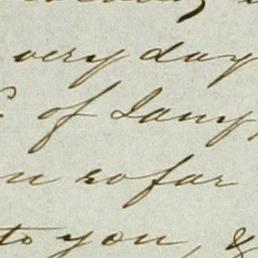 very day
of Jany,
so far
to you, &